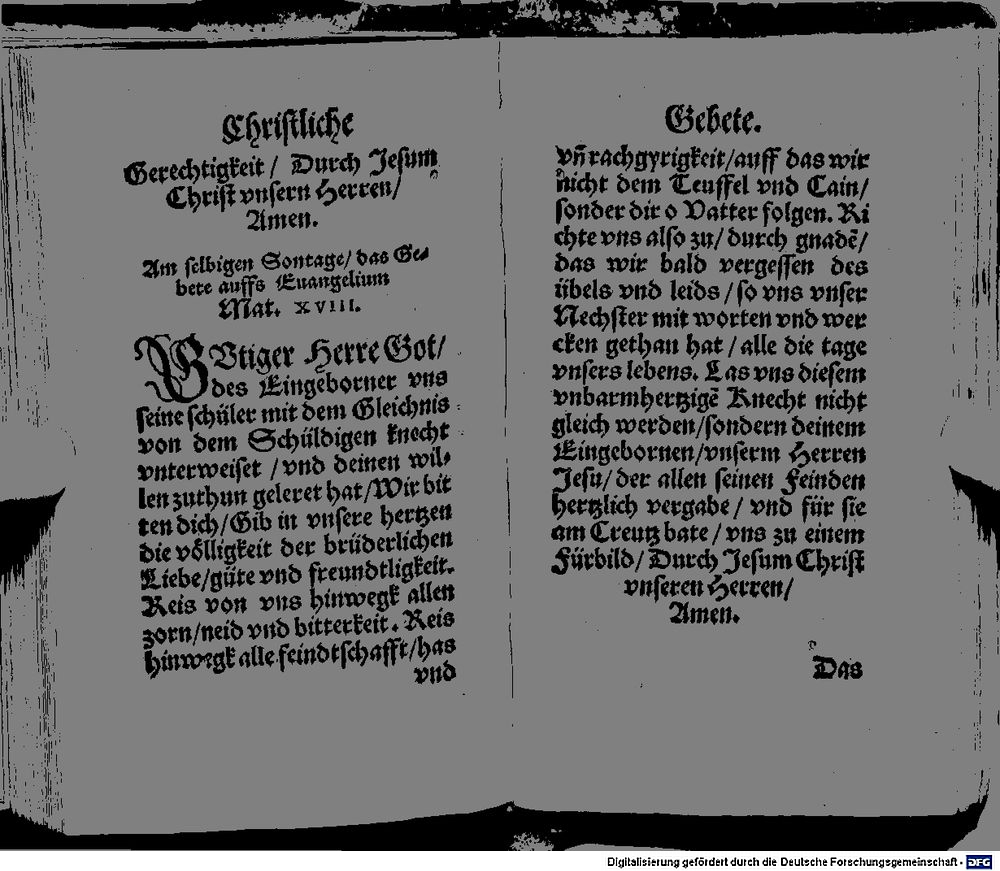 Christliche
Gerechtigkeit / Durch Jesum
Christ vnsern Herren/
Amen.
Am selbigen Sontage/ das Ge-
bete auffs Euangelium
Mat. XVIII.
GVtiger Herre Got/
des Eingeborner vns
seine schüler mit dem Gleichnis
von dem Schüldigen knecht
vnterweiset / vnd deinen wil-
len zuthun geleret hat/Wir bit
ten dich/Gib in vnsere hertzen
die völligkeit der brüderlichen
Liebe/güte vnd freundtligkeit.
Reis von vns hinwegk allen
zorn/neid vnd bitterkeit. Reis
hinwegk alle feindtschafft/has
vnd
Gebete.
vñ rachgyrigkeit/auff das wir
nicht dem Teuffel vnd Cain/
sonder dir o Vatter folgen. Ri
chte vns also zu/ durch gnadẽ/
das wir bald vergessen des
übels vnd leids / so vns vnser
Nechster mit worten vnd wer
cken gethan hat / alle die tage
vnsers lebens. Las vns diesem
vnbarmhertzigẽ Knecht nicht
gleich werden/sondern deinem
Eingebornen/vnserm Herren
Jesu/ der allen seinen Feinden
hertzlich vergabe / vnd für sie
am Creutz bate / vns zu einem
Fürbild/ Durch Jesum Christ
vnseren Herren/
Amen.
Das
Digitalisierung gefördert durch die Deutsche Forschungsgemeinschaft - DFG